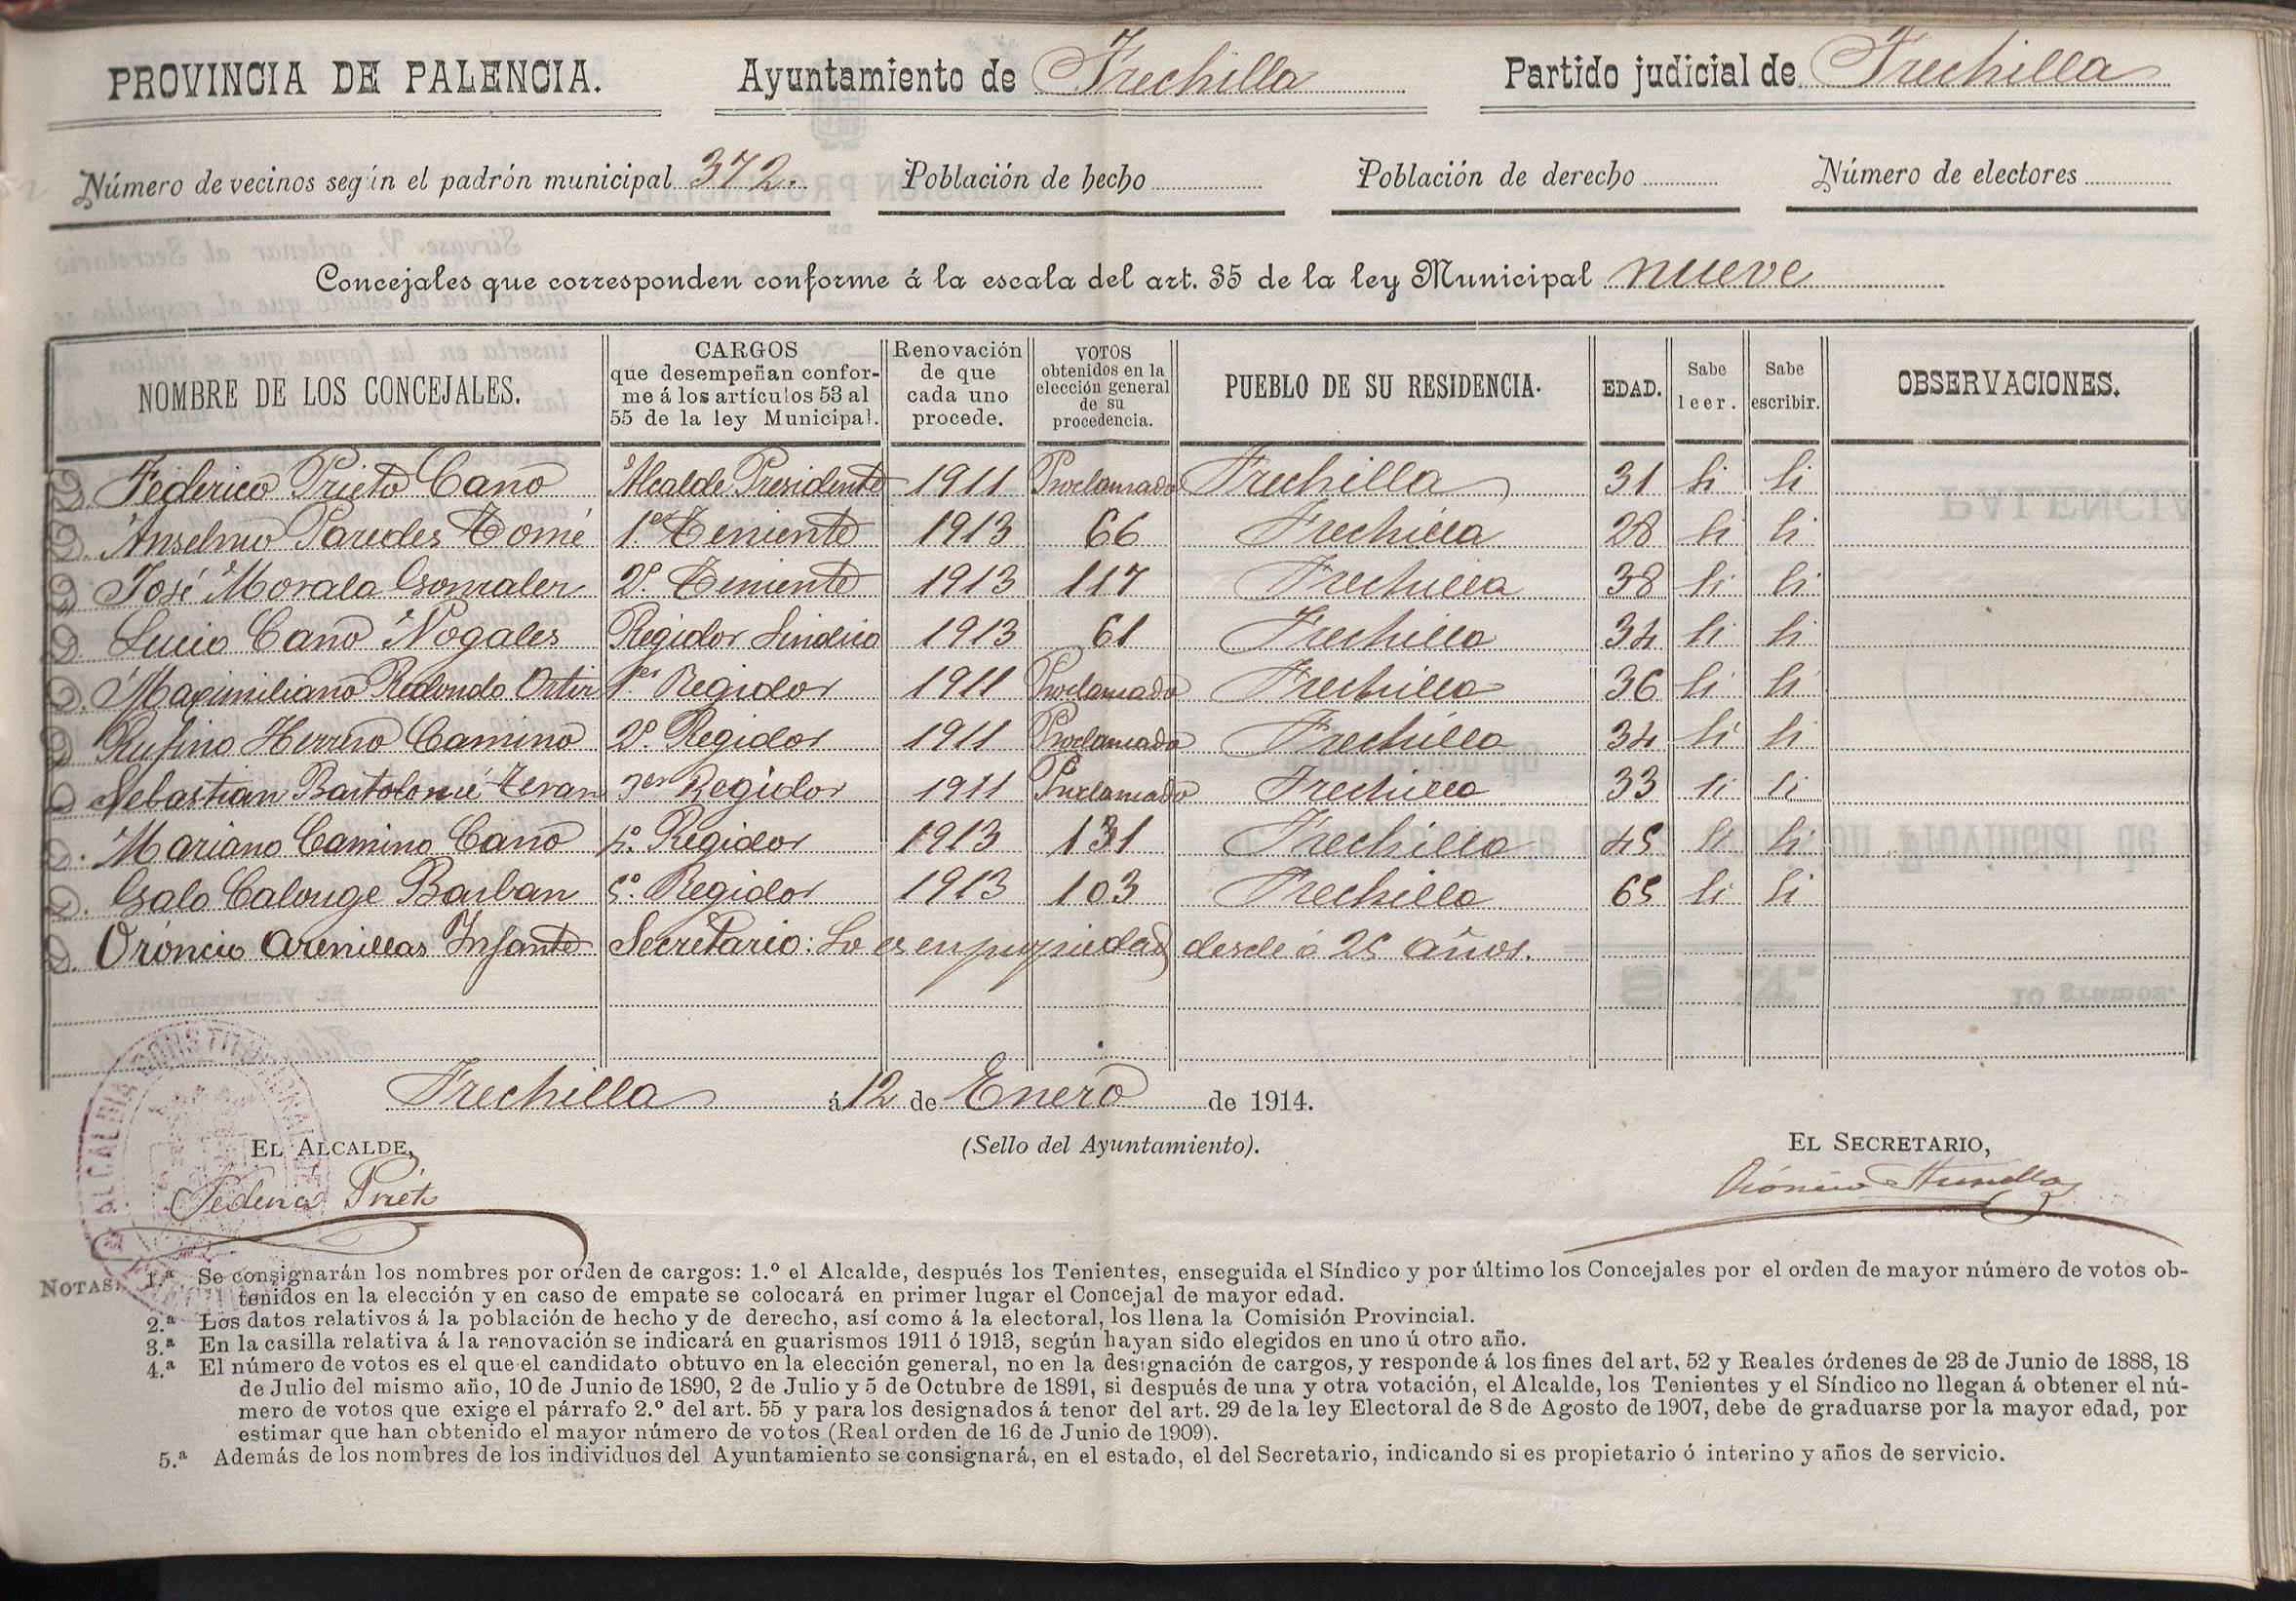 PROVINCIA DE PALENCIA. Ayuntamiento de Frechilla Partido judicial de Frechilla
Número de vecinos según el padrón municipal 372. Población de hecho Población de derecho Número de electores
Concejales que corresponden conforme á la escala del art. 35 de la ley Municipal nueve
NOMBRE DE LOS CONCEJALES.
CARGOS
que desempeñan confor-
me á los artículos 53 al
55 de la ley Municipal.
Renovación
de que
cada uno
procede.
VOTOS
obtenidos en la
elección general
de su
procedencia.
PUEBLO DE SU RESIDENCIA.
EDAD.
Sabe
leer.
Sabe
escribir.
OBSERVACIONES.
D. Federico Prieto Cano Alcalde Presidente 1911 Proclamado Frechilla 31 Si Si
D. Anselmo Paredes Tomé 1er Teniente 1913 66 Frechilla 28 Si Si
D. José Morala Gonzalez 2º Teniente 1913 117 Frechilla 38 Si Si
D. Lucio Cano Nogales Regidor Sindico 1913 61 Frechilla 34 Si Si
D. Maximiliano Redondo Ortiz 1er Regidor 1911 Proclamado Frechilla 36 Si Si
D. Rufino Herrero Camino 2º Regidor 1911 Proclamado Frechilla 34 Si Si
D. Sebastian Bartolomé Teran 3er Regidor 1911 Proclamado Frechilla 33 Si Si
D. Mariano Camino Cano 4º Regidor 1913 131 Frechilla 45 Si Si
D. Galo Calonge Barban 5º Regidor 1913 103 Frechilla 65 Si Si
D. Oroncio Arenillas Infante Secretario: Lo es en propiedad desde á 25 años.
Frechilla á 12 de Enero de 1914.
EL ALCALDE, (Sello del Ayuntamiento). EL SECRETARIO,
Federico Prieto Oroncio Arenillas
ALCALDIA CONSTITUCIONAL
NOTAS. 1.ª Se consignarán los nombres por orden de cargos: 1.º el Alcalde, después los Tenientes, enseguida el Síndico y por último los Concejales por el orden de mayor número de votos ob-
tenidos en la elección y en caso de empate se colocará en primer lugar el Concejal de mayor edad.
2.ª Los datos relativos á la población de hecho y de derecho, así como á la electoral, los llena la Comisión Provincial.
3.ª En la casilla relativa á la renovación se indicará en guarismos 1911 ó 1913, según hayan sido elegidos en uno ú otro año.
4.ª El número de votos es el que el candidato obtuvo en la elección general, no en la designación de cargos, y responde á los fines del art. 52 y Reales órdenes de 23 de Junio de 1888, 18
de Julio del mismo año, 10 de Junio de 1890, 2 de Julio y 5 de Octubre de 1891, si después de una y otra votación, el Alcalde, los Tenientes y el Síndico no llegan á obtener el nú-
mero de votos que exige el párrafo 2.º del art. 55 y para los designados á tenor del art. 29 de la ley Electoral de 8 de Agosto de 1907, debe de graduarse por la mayor edad, por
estimar que han obtenido el mayor número de votos (Real orden de 16 de Junio de 1909).
5.ª Además de los nombres de los individuos del Ayuntamiento se consignará, en el estado, el del Secretario, indicando si es propietario ó interino y años de servicio.